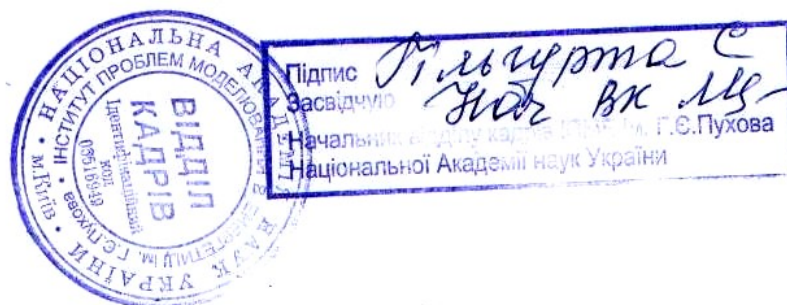 НАЦІОНАЛЬНА АКАДЕМІЯ НАУК УКРАЇНИ • м.Київ •
ІНСТИТУТ ПРОБЛЕМ МОДЕЛЮВАННЯ В ЕНЕРГЕТИЦІ ім. Г.Є.Пухова •
ВІДДІЛ
КАДРІВ
Ідентифікаційний
код
Підпис Гільгурта С
Засвідчую Нач ВК
Начальник відділу кадрів ІПМЕ ім. Г.Є.Пухова
Національної Академії наук України